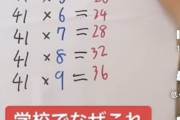 41 × 6 = 24
41 × 7 = 28
41 × 8 = 32
41 × 9 = 36
学校でなぜこれ